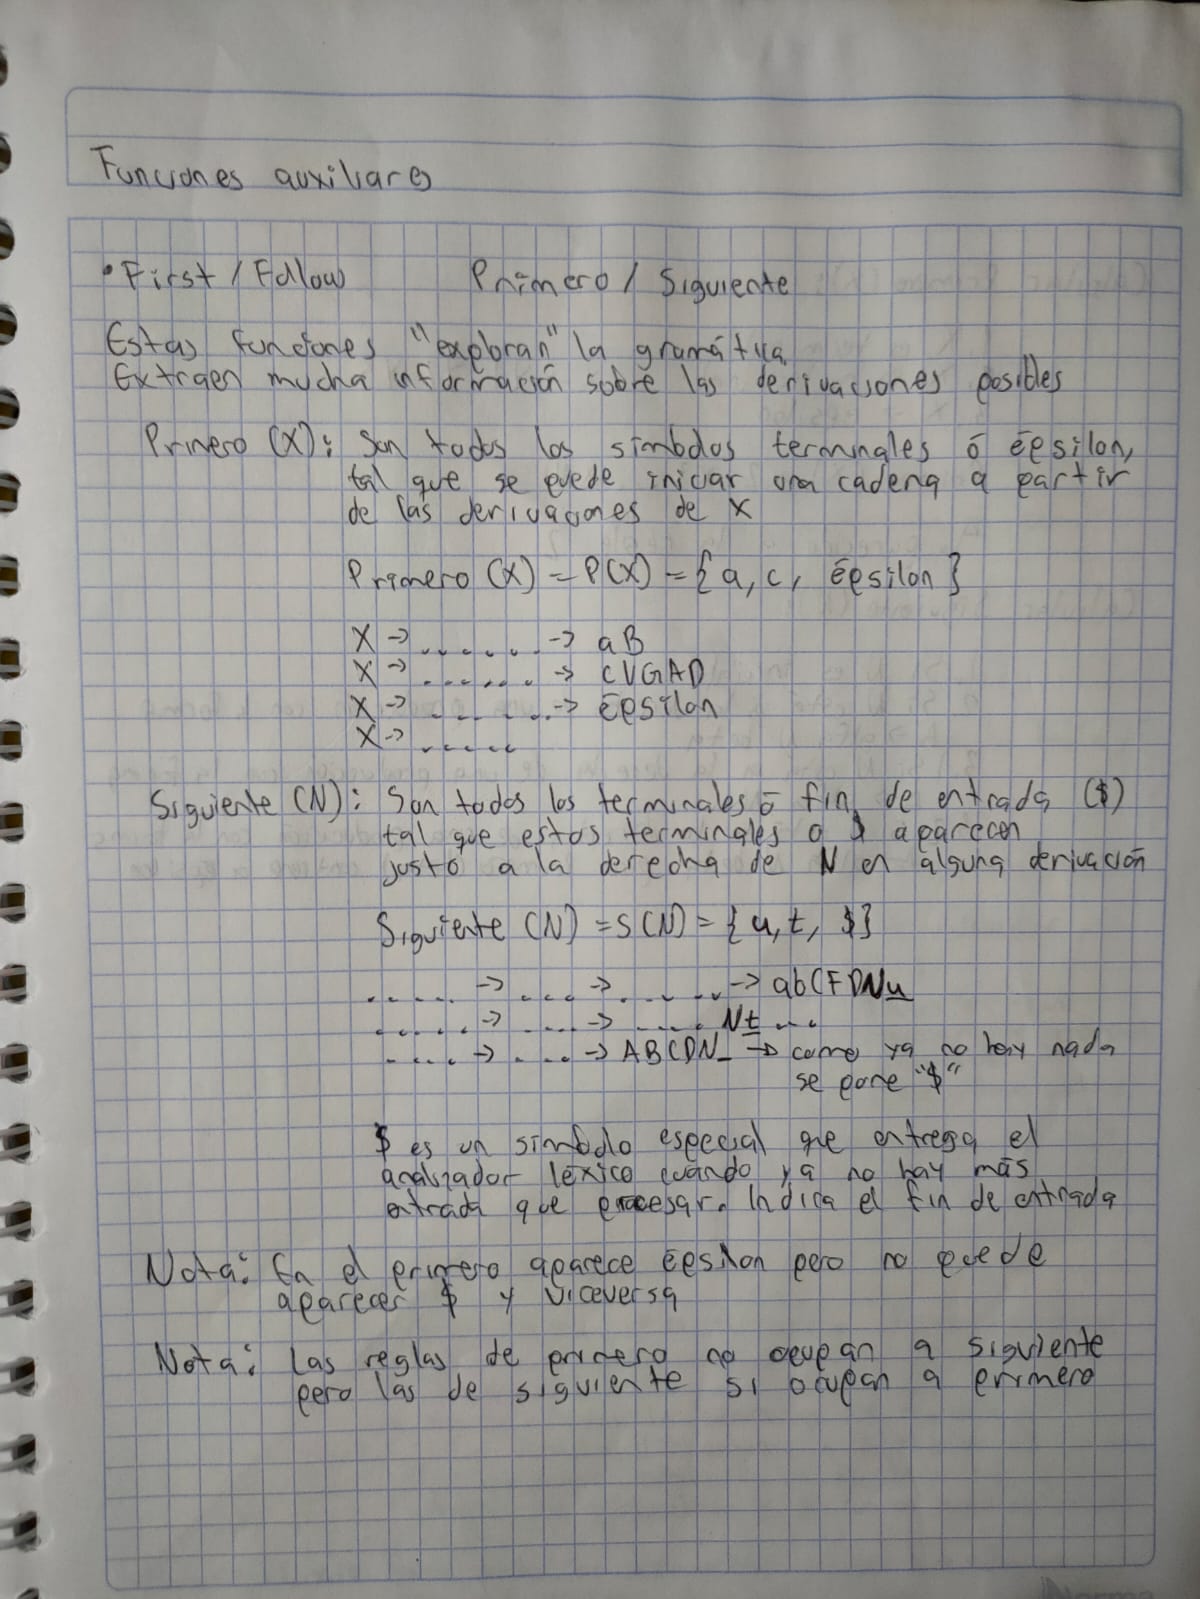 Funciones auxiliares
• First / Follow Primero / Siguiente
Estas funciones "exploran" la gramática
Extraen mucha información sobre las derivaciones posibles
Primero (X): Son todos los símbolos terminales ó épsilon,
tal que se puede iniciar una cadena a partir
de las derivaciones de X
Primero (X) = P(X) = { a, c, épsilon }
X → ....... → aB
X → ....... → CVGAD
X → ....... → Épsilon
X → .....
Siguiente (N): Son todos los terminales ó fin de entrada ($)
tal que estos terminales o $ aparecen
justo a la derecha de N en alguna derivación
Siguiente (N) = S(N) = { u, t, $ }
..... → .... → ...... → abCFDNu
..... → .... → ..... Nt ...
.... → .... → ABCDN_ → como ya no hay nada
se pone "$"
$ es un símbolo especial que entrega el
analizador léxico cuándo ya no hay más
entrada que procesar. Indica el fin de entrada
Nota: En el primero aparece Épsilon pero no puede
aparecer $ y viceversa
Nota: Las reglas de primero no ocupan a siguiente
pero las de siguiente si ocupan a primero